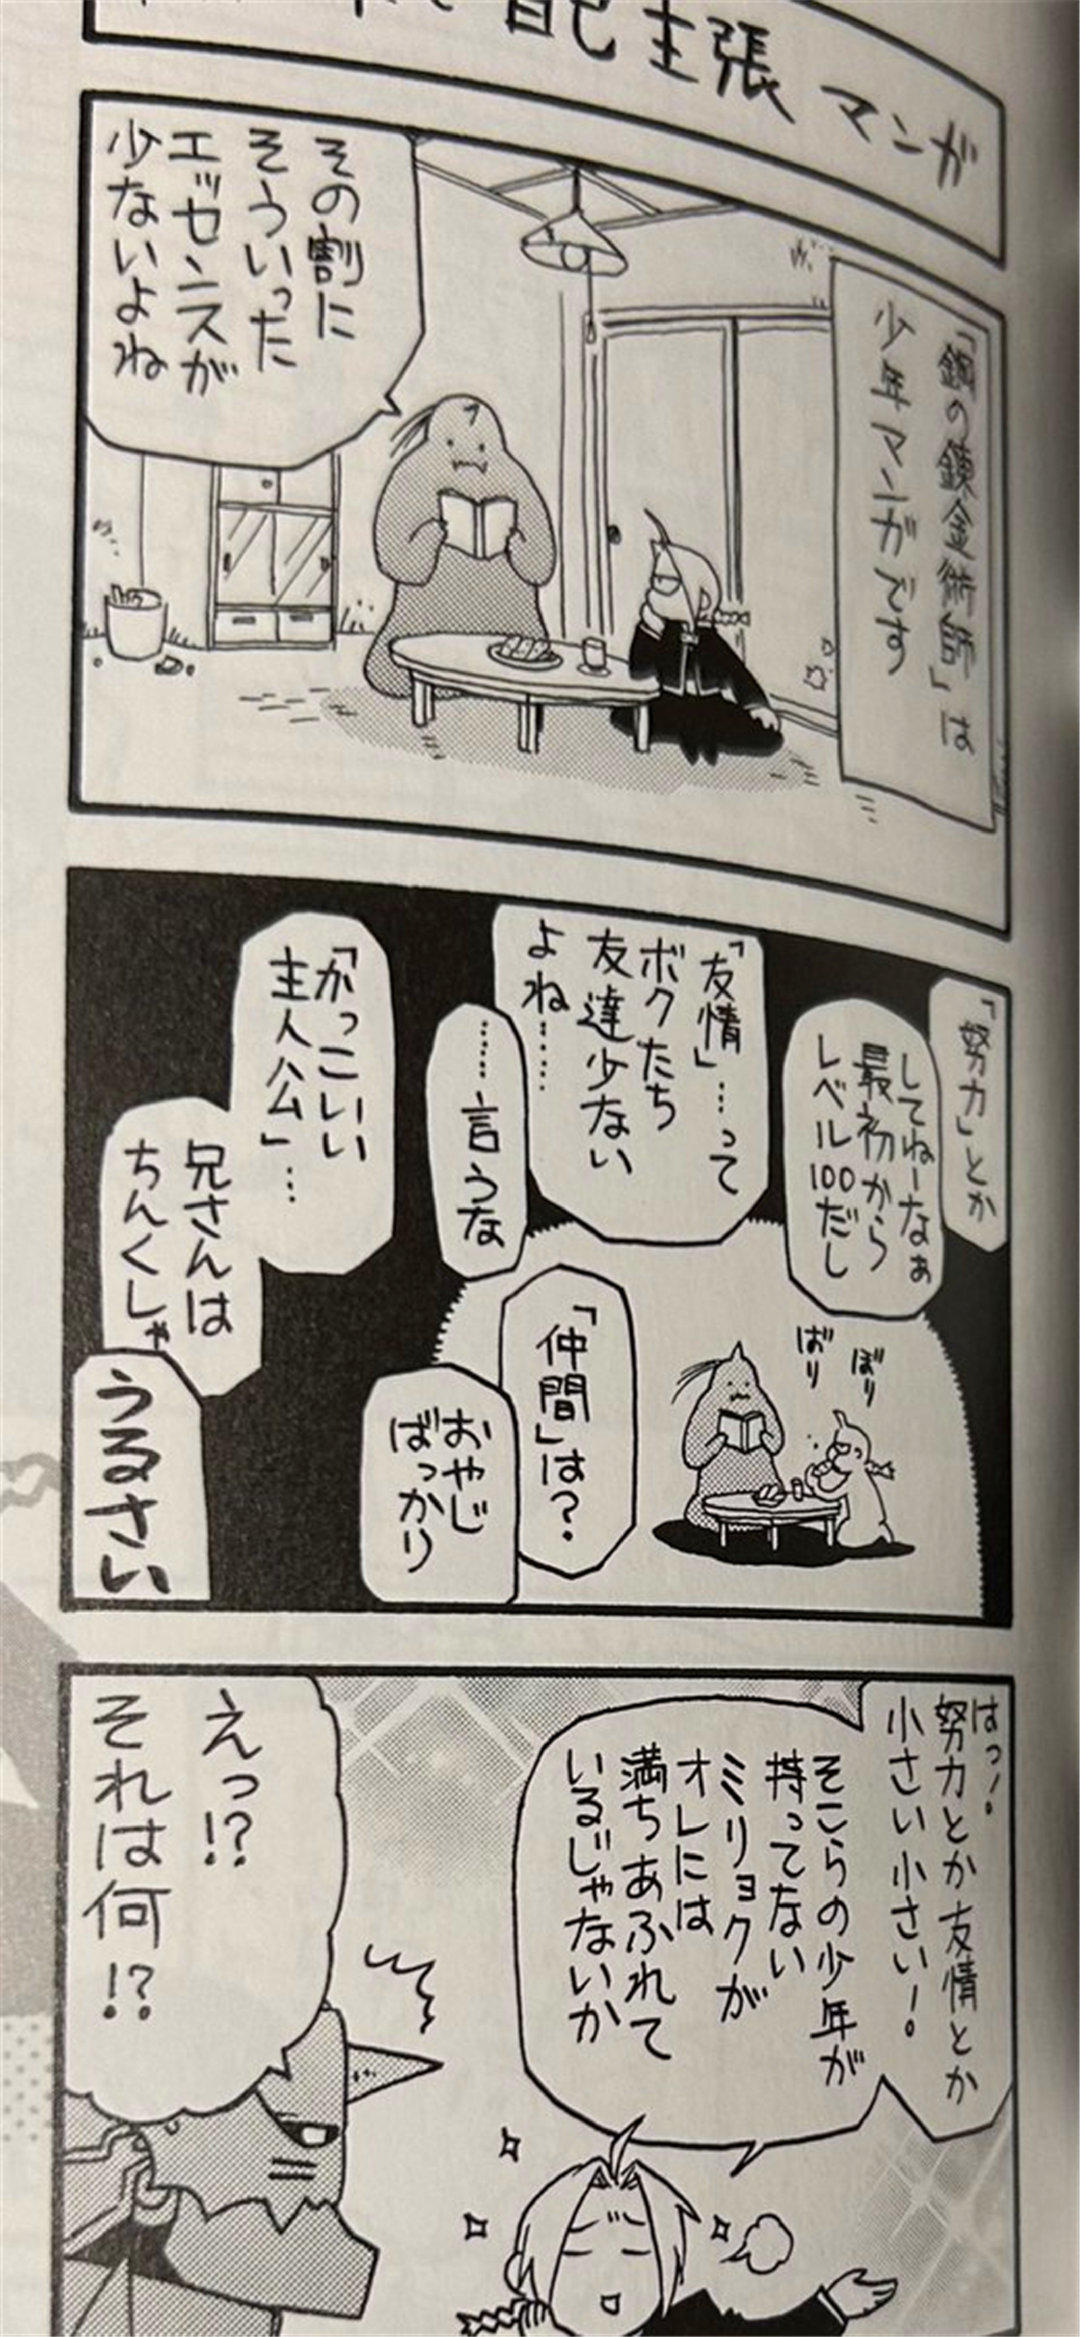 自己主張マンガ
「鋼の錬金術師」は
少年マンガです
その割に
そういった
エッセンスが
少ないよね
「努力」とか
してねーなぁ
最初から
レベル100だし
「友情」…って
ボクたち
友達少ない
よね……
……言うな
ぼり
ぼり
「仲間」は?
おやじ
ばっかり
「かっこいい
主人公」…
兄さんは
ちんくしゃ
うるさい
はっ!
努力とか友情とか
小さい小さい!
そこらの少年が
持ってない
ミリョクが
オレには
満ちあふれて
いるじゃないか
えっ!?
それは何!?